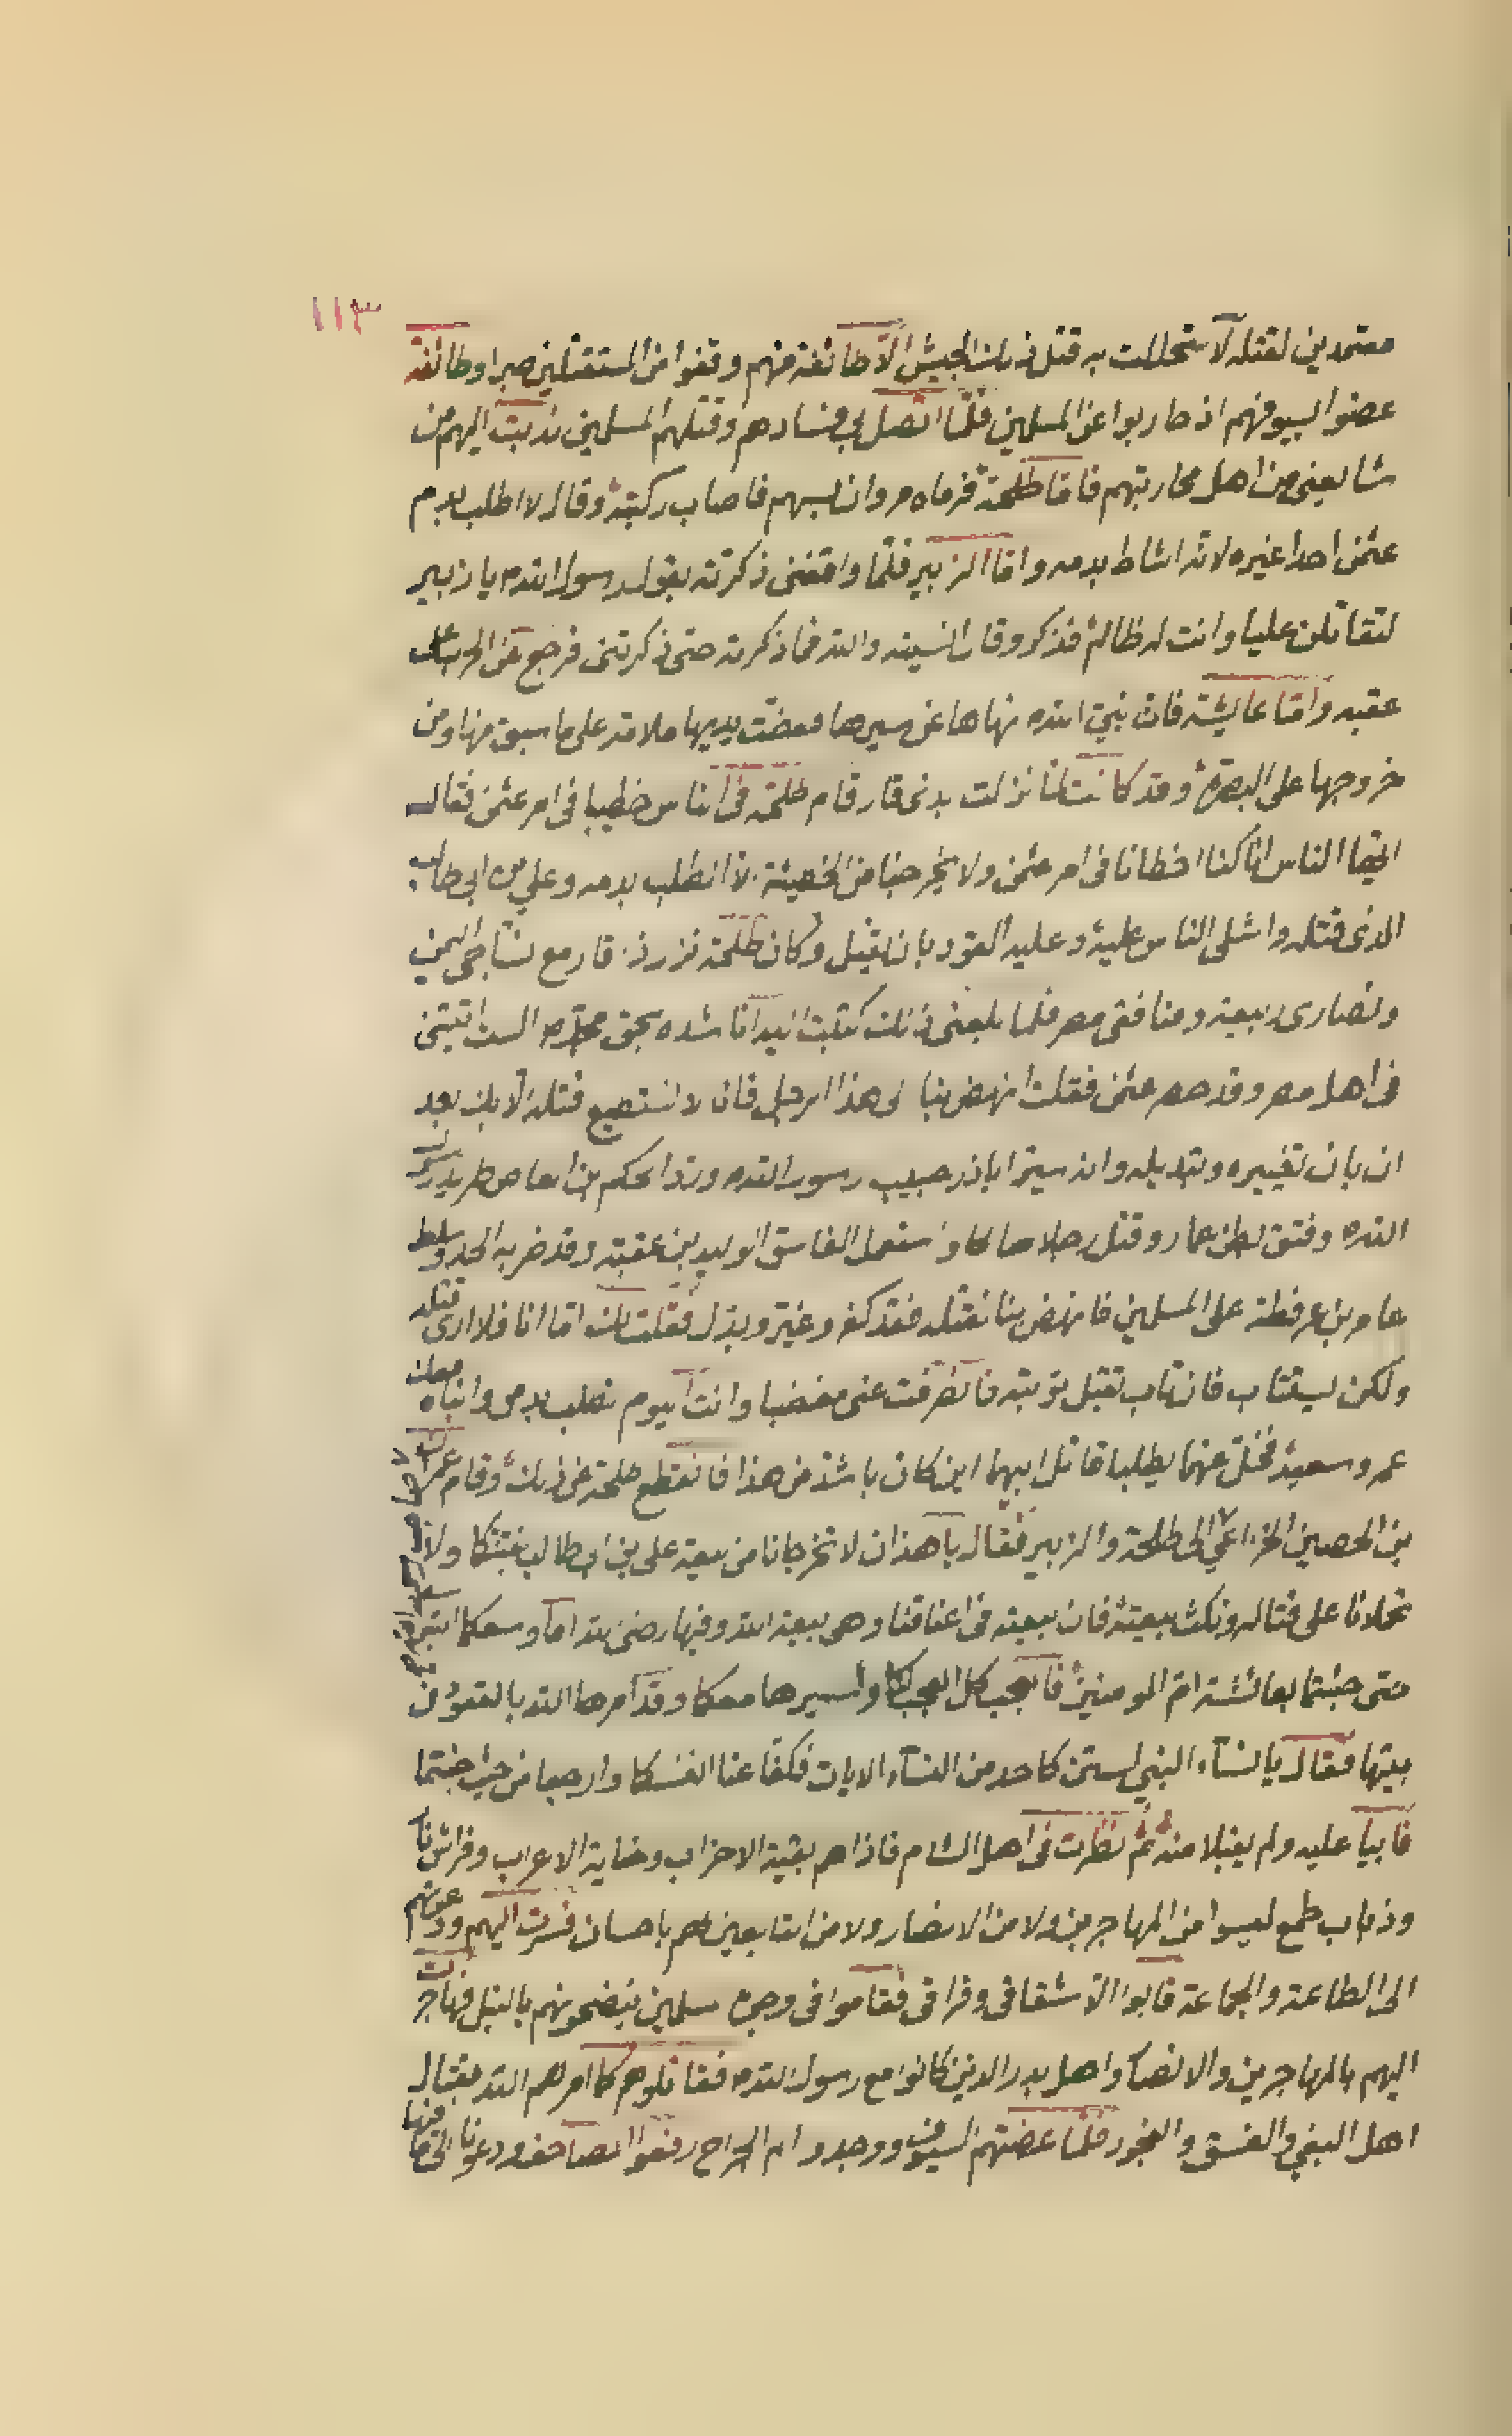 ١١٣
معتمدين لقتله لاستحللت به قتل ذلك الجيش الا طائفة منهم وقفوا من المستقتلين صبرا وطائفة
عضوا لسيوفهم اذ حاربوا عن المسلمين فلما اتصل بي فسادهم وقتلهم المسلمين ندبت اليهم من
شايعنى من اهل محاربتهم فاما طلحة فرماه مروان بسهم فاصاب ركبته وقال لا اطلب بدم
عثمن احدا غيره لانه اشاط بدمه واما الزبير فلما واقفنى ذكرته بقول رسول الله يا زبير
لتقاتلن عليا وانت له ظالم فذكر وقال انسيته والله فما ذكرته حتى ذكرتنى فرجع عن الحرب على
عقبه واما عايشة فان نبي الله نهاها عن سيرها فعضت يديها ملامة على ما سبق منها ومن
خروجها على البصرة وقد كانت لما نزلت بذى قار قام طلحة فى الناس خطيبا فى امر عثمن فقال
ايها الناس انا كنا اخطانا فى امر عثمن ولا يخرجنا من الخطيئة الا الطلب بدمه وعلي بن ابى طالب
الذى قتله واشلى الناس عليه وعليه القود بان يقتل وكان طلحة نزل ذا قار مع نساجى اليمن
ونصارى ربيعة ومنافقى مصر فلما بلغنى ذلك كتبت اليه اناشده بحق محمد الست اتيتنى
فى اهل مصر وقد حصر عثمن فقلت انهض بنا الى هذا الرجل فانا لا نستطيع قتله الا بك بعد
ان بان تغييره وتبديله وانه سير اباذر حبيب رسول الله ورد الحكم بن العاص طريد رسول
الله وفتق بطن عمار وقتل رجلا صالحا واستعمل الفاسق الوليد بن عقبة وقد ضربه الحد وسلط
عامر بن عرفطة على المسلمين فانهض بنا نقتله فقد كفر وغير وبدل فقلت لك اما انا فلا ارى قتله
ولكن يستتاب فان تاب تقبل توبته فانصرفت عنى مغضبا وانت اليوم تطلب بدمى وابناه معك
عمر وسعيد فخل عنهما يطلبا قاتل ابيهما اين كان باشد من هذا فانقطع طلحة عن ذلك وقام عمران
بن الحصين الخزاعي الى طلحة والزبير فقال يا هذان لا تخرجانا من بيعة على بن ابى طالب بفتنتكما ولا
تحملانا على قتاله ونكث بيعته فان بيعته فى اعناقنا وهى بيعة الله وفيها رضى لله اما وسعكما
حتى جئتما بعائشة ام المومنين فالعجب كل العجب لكما ولمسيرها معكما وقد امرها الله بالقعود فى
بيتها فقال يا نساء النبي لستن كاحد من النساء الايات فكفا عنا انفسكما وارجعا من حيث جئتما
فابيا عليه ولم يقبلا منه ثم نظرت فى اهل الشام فاذا هم بقية الاحزاب وحثاية الاعراب وفراش نار
وذباب طمع ليسوا من المهاجرين ولا من الانصار ولا من التابعين لهم باحسان فسرت اليهم ودعوتهم
الى الطاعة والجماعة فابوا الا شقاقى وفراقى فقاموا فى وجوه المسلمين ينضحونهم بالنبل فهاجرت
اليهم بالمهاجرين والانصار واهل بدر الذين كانوا مع رسول الله فقاتلوهم كما امرهم الله بقتال
اهل البغي والفسق والفجور فلما عضتهم السيوف ووجدوا الم الجراح رفعوا المصاحف ودعونا الى ما فيها